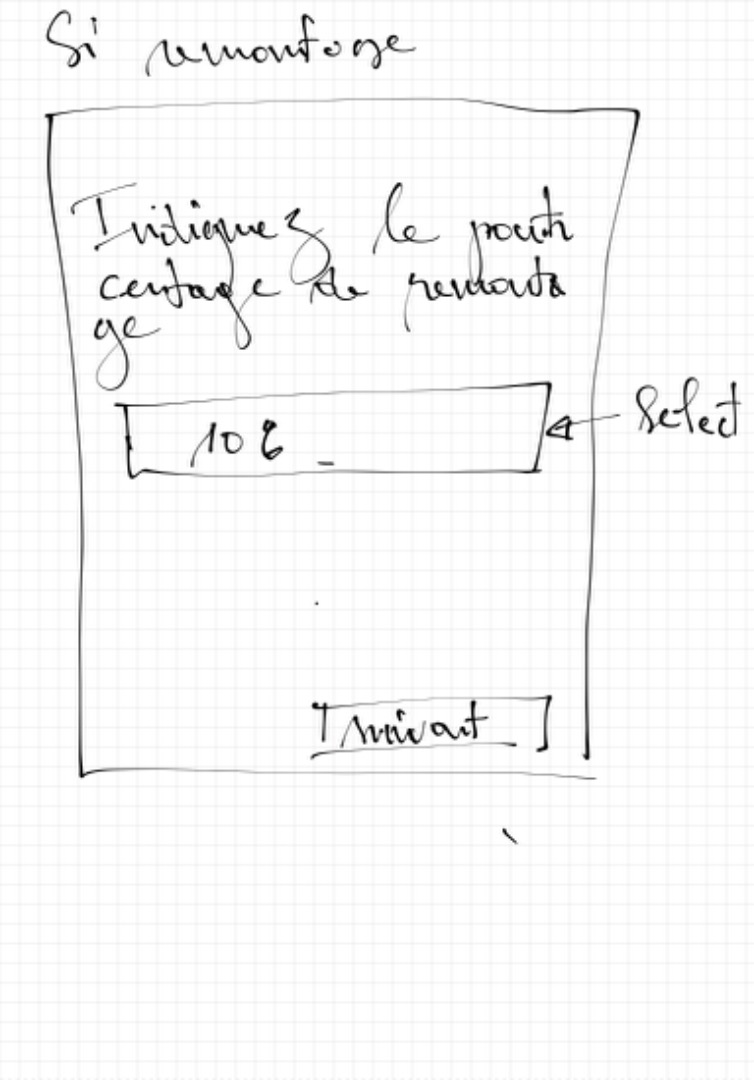 Si remontage
Indiquez le pourcentage de remonta
ge
10 % _
Select
suivant